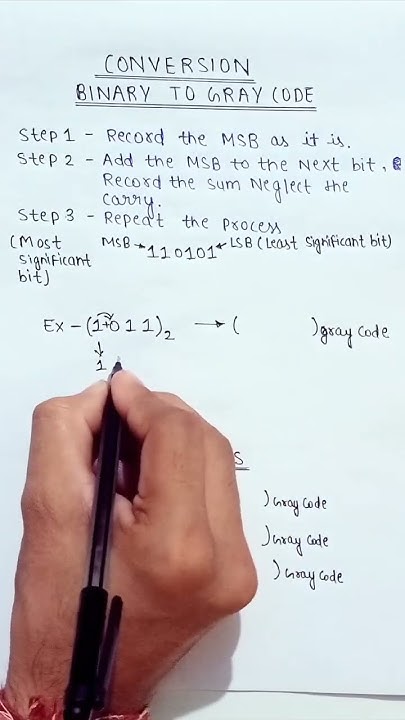 CONVERSION
BINARY TO GRAY CODE
Step 1 - Record the MSB as it is.
Step 2 - Add the MSB to the Next bit, &
Record the sum Neglect the
carry.
Step 3 - Repeat the Process
(Most significant bit) MSB → 110101 ← LSB (Least significant bit)
Ex - (1+0 1 1)₂ → ( ) gray code
↓
1
S
) Gray Code
) Gray Code
) Gray Code